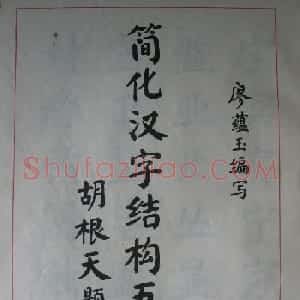 廖蕴玉编写
简化汉字结构五
胡根天题
Shufazidao.com